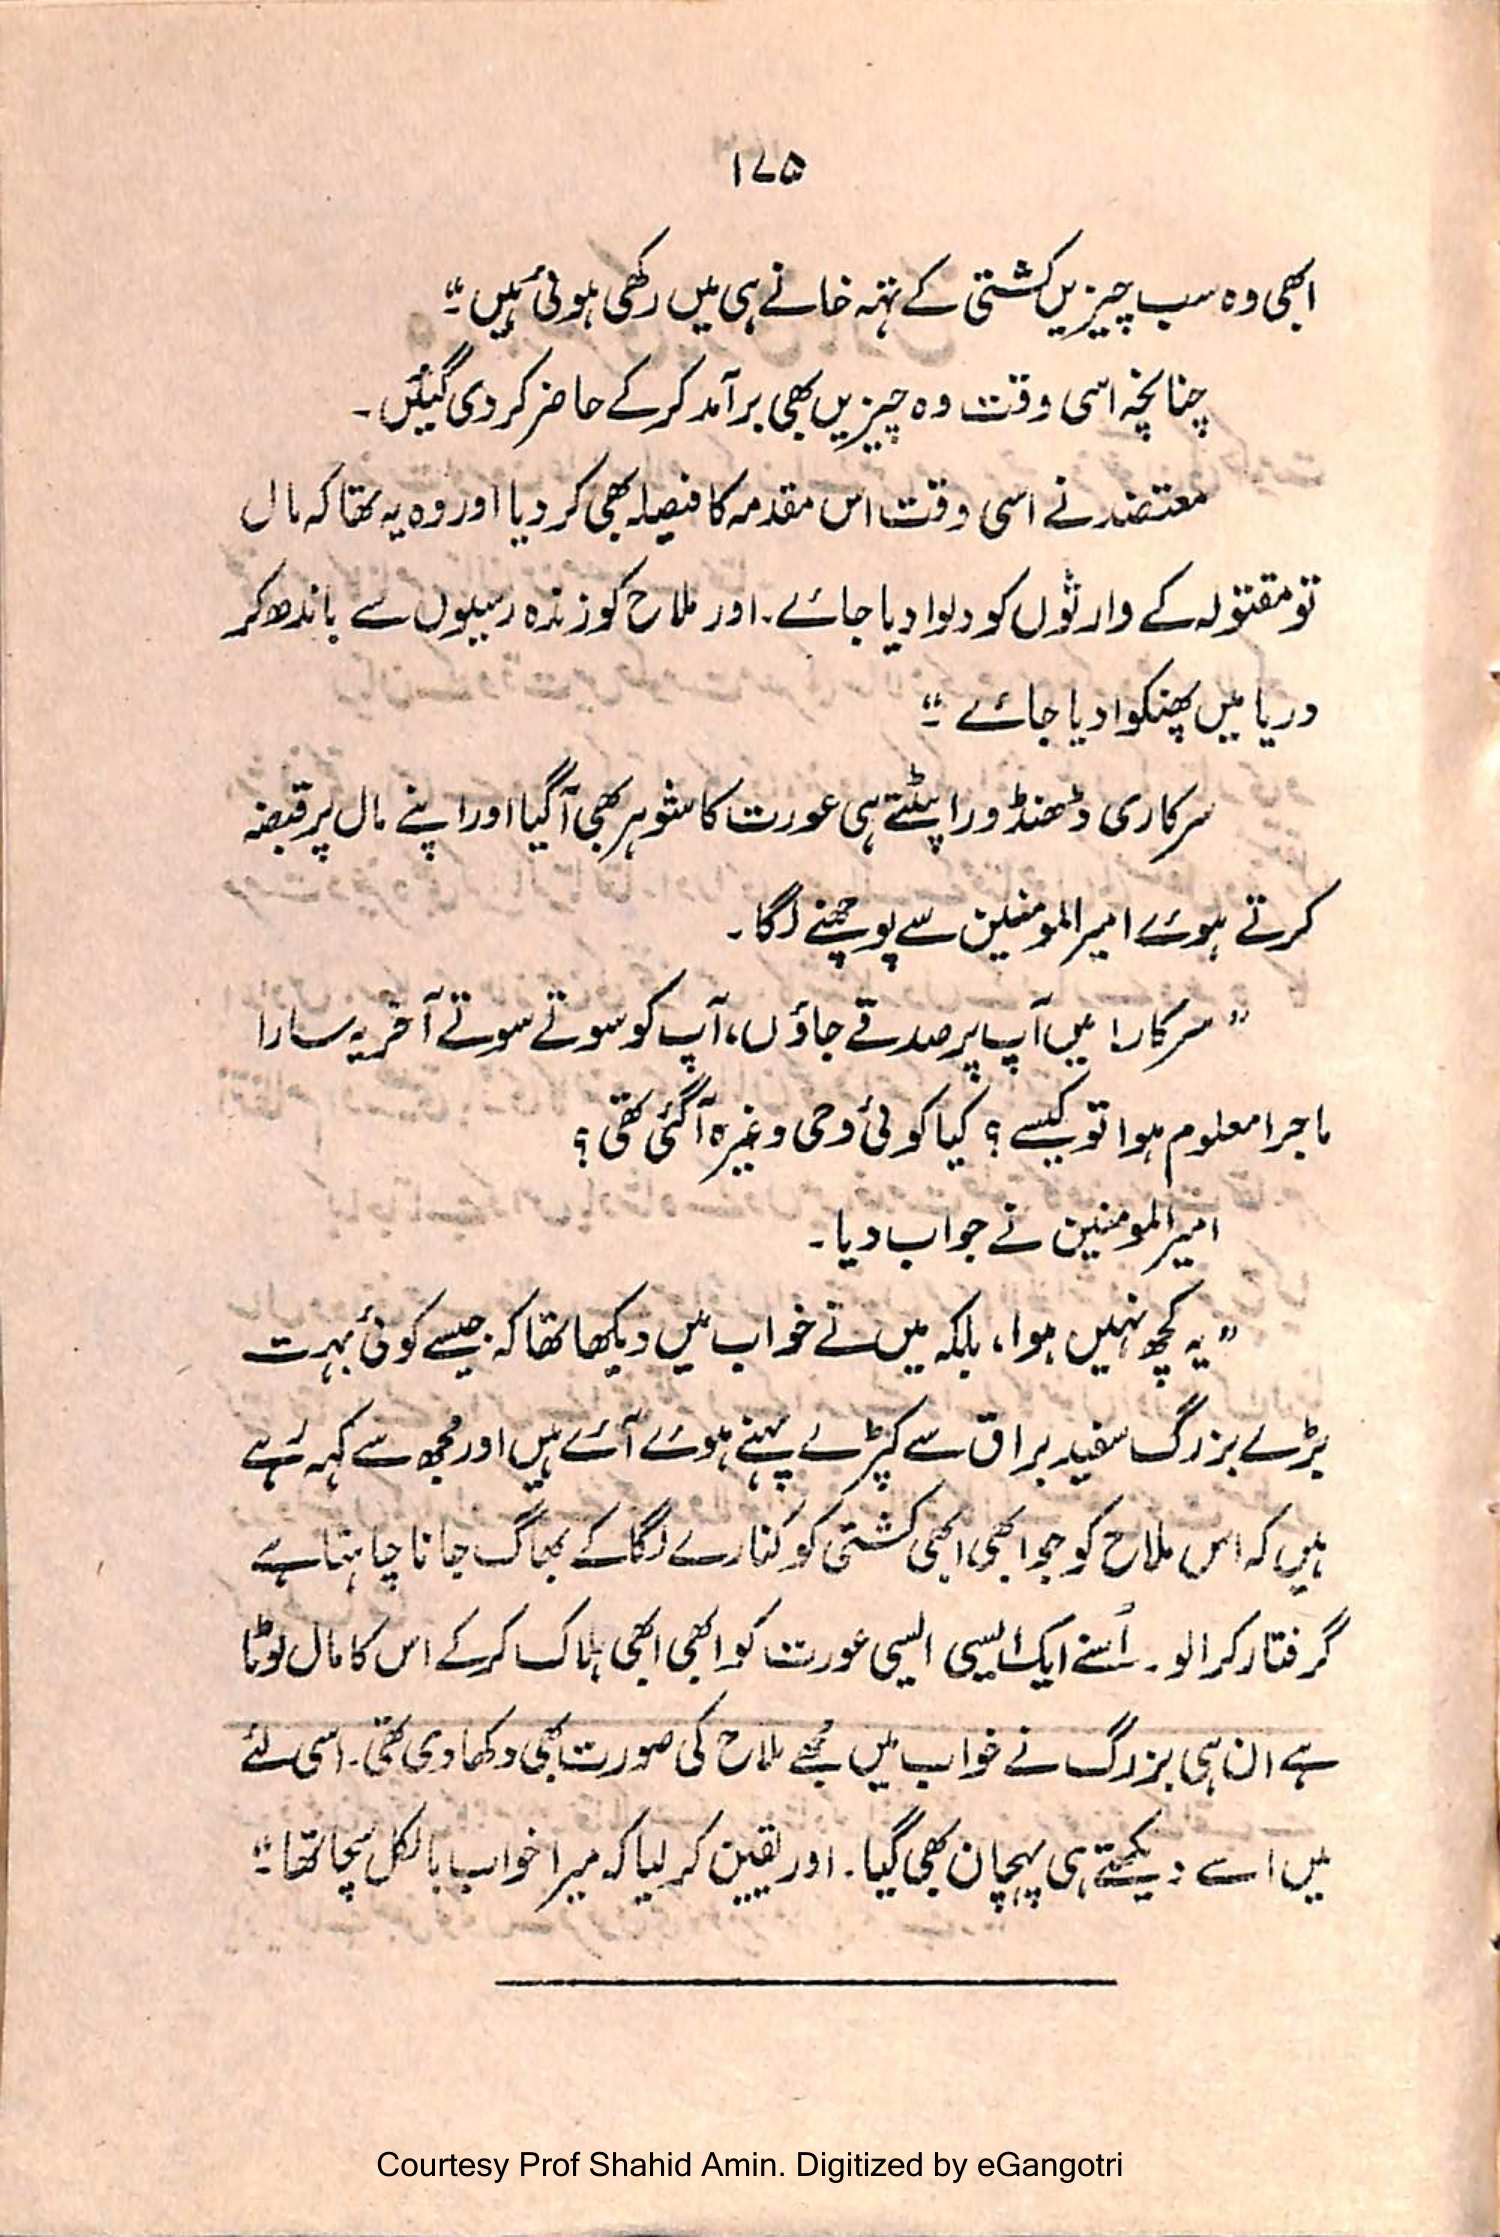 ۱۷۵
ابھی وہ سب چیزیں کشتی کے تہہ خانے ہی میں رکھی ہوئی ہیں۔“
چنانچہ اسی وقت وہ چیزیں بھی برآمد کر کے حاضر کر دی گئیں۔
معتضد نے اسی وقت اس مقدمہ کا فیصلہ بھی کر دیا اور وہ یہ تھا کہ مال
تو مقتولہ کے وارثوں کو دلوا دیا جائے۔ اور ملاح کو زندہ رسیوں سے باندھ کر
دریا میں پھنکوا دیا جائے۔“
سرکاری ڈھنڈورا پٹتے ہی عورت کا شوہر بھی آ گیا اور اپنے مال پر قبضہ
کرتے ہوئے امیرالمومنین سے پوچھنے لگا۔
”سرکار! میں آپ پر صدقے جاؤں، آپ کو سوتے سوتے آخر یہ سارا
ماجرا معلوم ہوا تو کیسے؟ کیا کوئی وحی وغیرہ آ گئی تھی؟
امیرالمومنین نے جواب دیا۔
”یہ کچھ نہیں ہوا، بلکہ میں نے خواب میں دیکھا تھا کہ جیسے کوئی بہت
بڑے بزرگ سفید براق سے کپڑے پہنے ہوئے آئے ہیں اور مجھ سے کہہ رہے
ہیں کہ اس ملاح کو جو ابھی ابھی کشتی کو کنارے لگا کے بھاگ جانا چاہتا ہے
گرفتار کرا لو۔ اُسنے ایک ایسی ایسی عورت کو ابھی ابھی ہلاک کر کے اس کا مال لوٹا
ہے ان ہی بزرگ نے خواب میں مجھے ملاح کی صورت بھی دکھا دی تھی۔ اسی لئے
میں اسے دیکھتے ہی پہچان بھی گیا۔ اور یقین کر لیا کہ میرا خواب بالکل سچا تھا۔“
Courtesy Prof Shahid Amin. Digitized by eGangotri